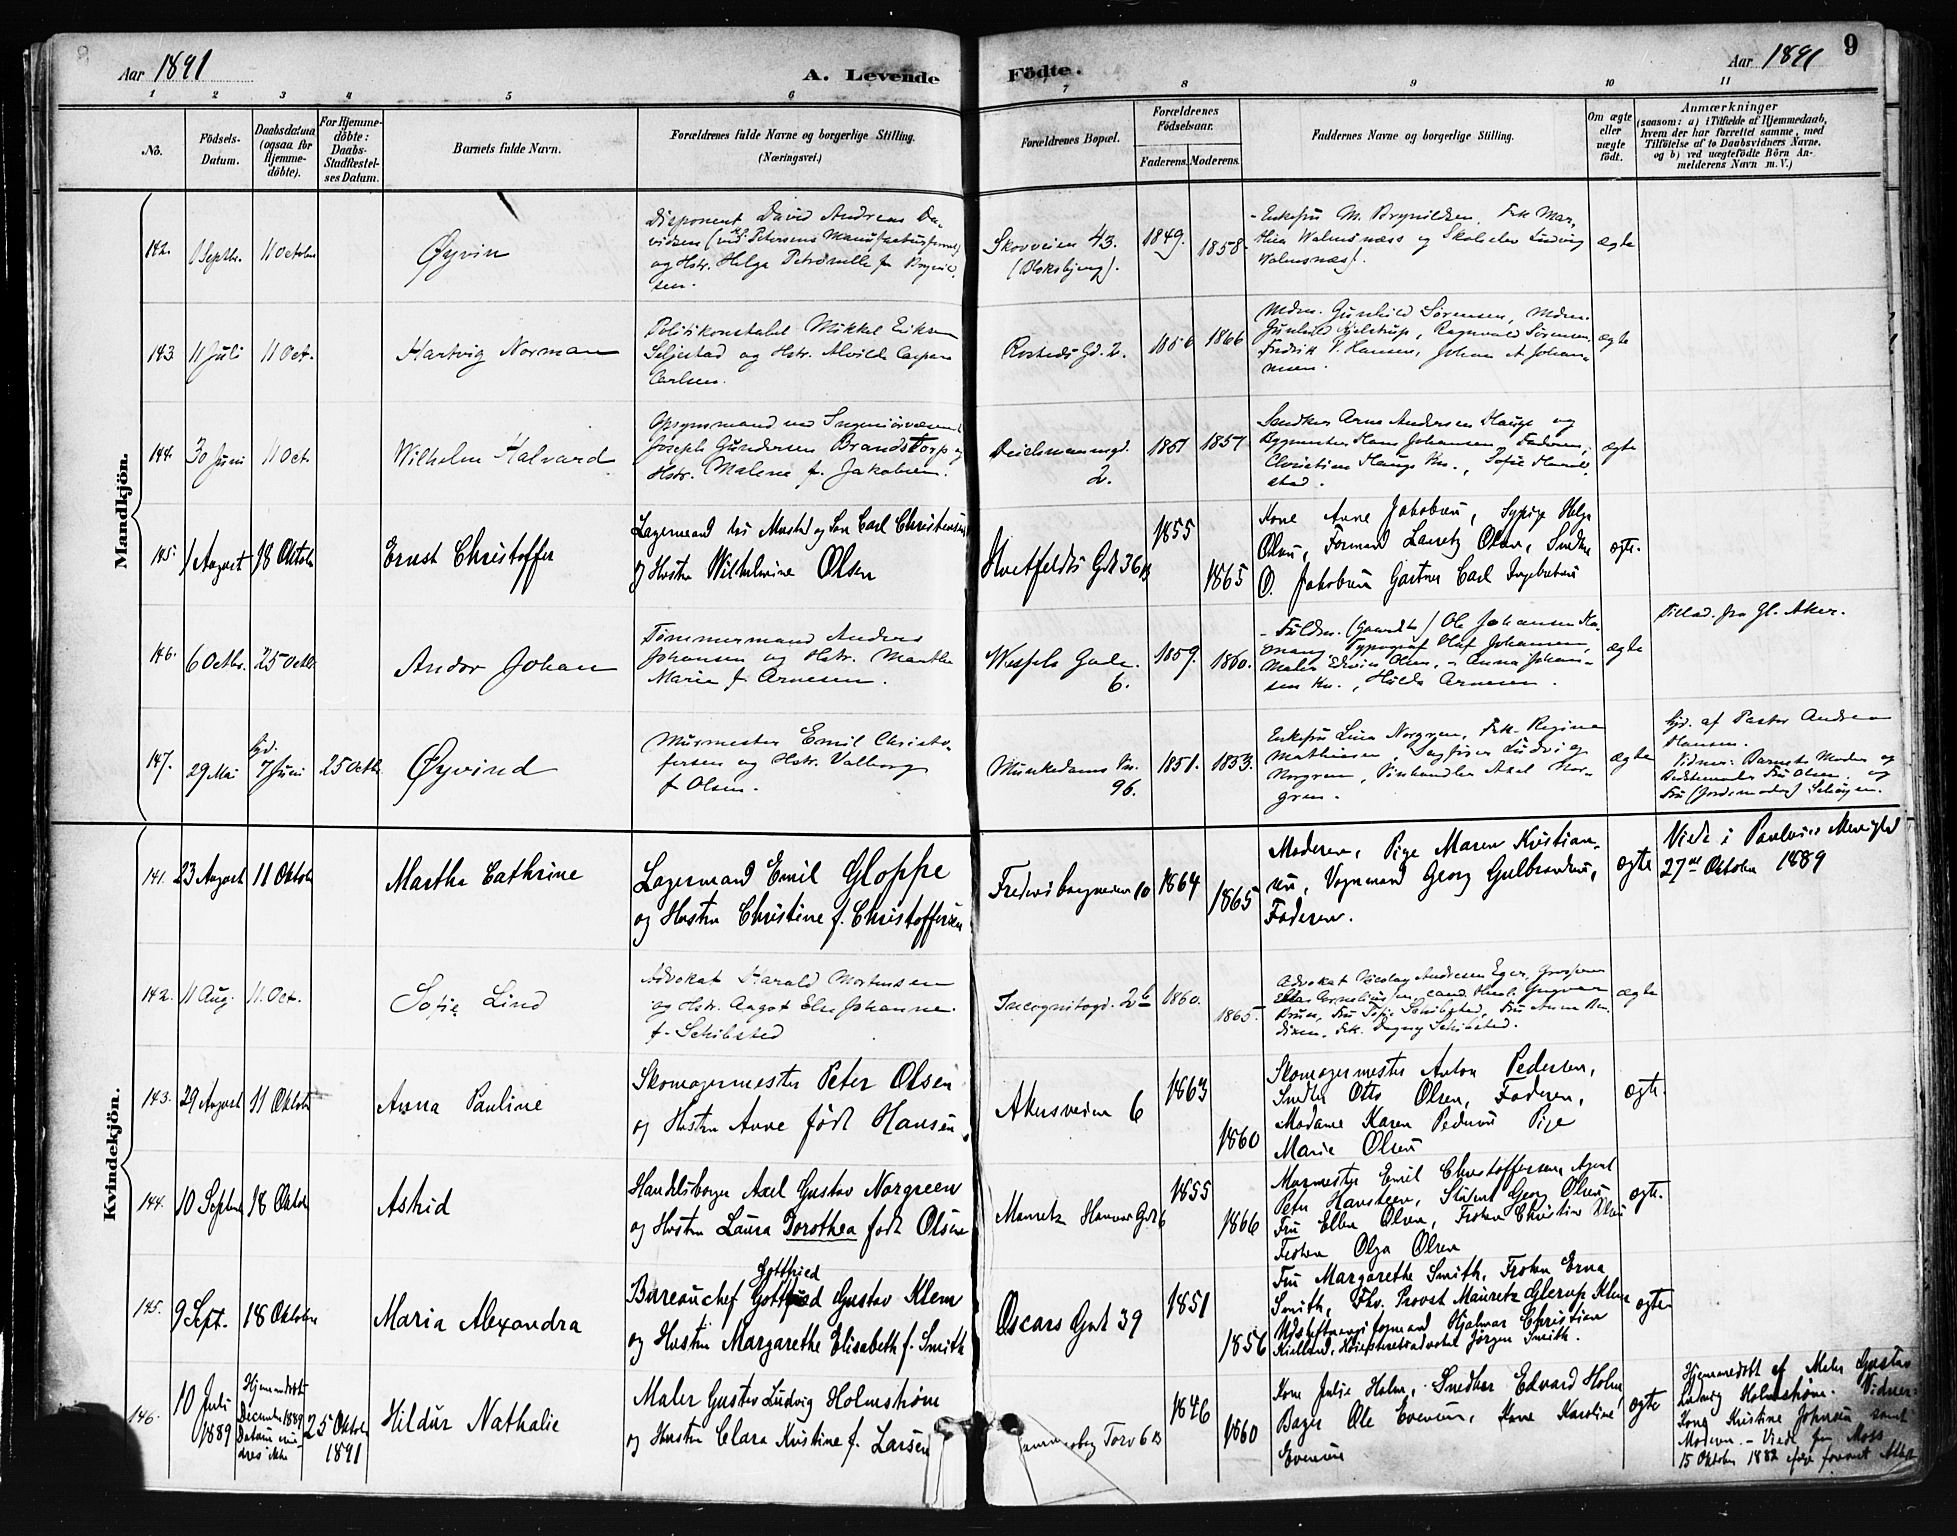 Aar 1891
A. Levende
Födte.
Aar 1891
9
1 2 3 4 5 6 7 8 9 10 11
No.
Födsels-
Datum.
Daabsdatum
(ogsaa for
Hjemme-
döbte).
For Hjemme-
döbte:
Daabs-
Stadfæstel-
ses Datum.
Barnets fulde Navn.
Forældrenes fulde Navne og borgerlige Stilling.
(Næringsvei.)
Forældrenes Bopæl.
Forældrenes
Födselsaar.
Faderens.
Moderens.
Faddernes Navne og borgerlige Stilling.
Om ægte
eller
uægte
födt.
Anmærkninger
(saasom: a) i Tilfælde af Hjemmedaab,
hvem der har forrettet samme, med
Tilföielse af to Daabsvidners Navne,
og b) ved uægtefödte Börn An-
melderens Navn m. V.)
Mandkjön.
142.
Septbr.
11 October
Øyvin
Disponent David Andreas Da-
vidsen
og Hstr. Helga Petronelle f. Brynild-
sen.
Skovveien 43.
1849.
1858.
Enkefru M. Brynildsen, Frk Mar-
Walmsnæss og Ludvig
Walmsnæs.
ægte
143
11 Juli
11 Oct.
Hartvig Norman
Politikonstabel Mikkel Eriksen
Seljestad og Hstr. Alvilde Caspara
Carlsen.
Rosteds Gd. 2.
1856
1866
Mdm. Gunhild Sørensen, Mdm.
Gunhild Hjelstrup, Ragnvald Sørensen,
Fredrik P. Hansen, Johan A Johan-
nesen.
ægte
144.
30 Juni
11 Oct.
Wilhelm Halvard
Opsynsmand ved Ingeniörvæsenet
Joseph Gundersen Brandstorp og
Hstr. Malene f. Jakobsen.
Deichmannsgd.
2.
1851
1857
Snedker Arne Andersen Hauge og
Bygmester Hans Johansen, Faderen,
Christine Hauge Kn., Sofie
stad.
ægte
145.
1 August
18 Oktober
Ernst Christoffer
Lagermand hos Mustad og Søn Carl Christensen
og Hustru Wilhelmine Olsen
Huitfeldts Gd 36 B
1855
1865
Kone Anne Jakobsen, Sypige Helga
Olsen, Formand Lauritz Olsen, Snedker
O. Jakobsen Gartner Carl Ingebretsen
ægte.
146.
6 Octbr.
25 Octbr.
Andor Johan
Tømmermand Anders
Johansen og Hstr. Marthe
Marie f. Arnesen.
Wessels Gade.
6.
1859.
1860.
Fuldm. (Gaardbr) Ole Johansen Ro-
mang, Typograf Olaf Johansen,
Maler Edvin Olsen, - Anna Johan-
sen Kn., Hulda Arnesen.
ægte
Tillad. fra Gl. Aker.
147.
29 Mai
hjd.
7 Juni
25 Octbr
Øyvind
Murmester Emil Christo-
fersen og Hstr. Valborg
f. Olsen.
Munkedams Vn.
96.
1851.
1853.
Enkefru Lina Norgren, Frk. Regina
Mathiesen, Ludvig
Norgren, Vinhandler Axel Nor-
gren.
ægte
hjd. af Pastor Andreas
Hansen.
Vidner: Barnets Moder og
Bedstemoder Fru Olsen, og
Fru (Jordemoder)
Kvindekjön.
141.
23 August
11 Oktober
Marthe Cathrine
Lagermand Emil Gloppe
og Hustru Christine f. Christoffersen
Frederiborgveien 10
1864
1865
Moderen, Pige Maren Kristian-
sen, Vognmand Georg Gulbrandsen,
Faderen.
ægte
Viede i Paulus Menighed
27de Oktober 1889
142.
11 Aug.
11. Oct.
Sofie Lind
Advokat Harald Mortensen
og Hstr. Aagot Else Johanne
f. Schibsted
Incognitogd. 2b
1860.
1865.
Advokat Nicolay Andresen Eger,
cand. theol. Gunnar
Bruun, Fru Sofie Schibsted, Fru Anna Ben-
dixen, Frk. Dagny Schibsted.
ægte
143.
29 August
11 Oktober
Anna Pauline
Skomagermester Peter Olsen
og Hustru Anne født Hansen.
Akersveien 6
1863
1860
Skomagermester Anton Pedersen,
Snedker Otto Olsen, Faderen,
Madame Karen Pedersen Pige
Marie Olsen
ægte.
144.
10 September
18 Oktober
Astrid
Handelsborger Axel Gustav Norgreen
og Hustru Laura Dorothea født Olsen
Mauritz Hansens Gd 6
1855
1866
Murmester Emil Christoffersen Agent
Peter Hansteen, Student Georg Olsen
Fru Ellen Olsen, Frøken Christine Olsen
Frøken Olga Olsen
ægte.
145.
9 Sept.
18 Oktober
Maria Alexandra
Gottfried
Bureauchef Gottfried Gustav Klem
og Hustru Margarethe Elisabeth f. Smith
Oscars Gd 39
1851
1856
Fru Margarethe Smith, Frøken Erna
Smith, Fhv. Provst Mauritz Glerup Klem
Hjalmar Christian
Kielland, Høiesteretsadvokat Jørgen Smith.
ægte
146.
10 Juli
1889
Hjemmedøbt
December 1889
Datum erin-
dres ikke
25 Oktober
1891
Hildur Nathalie
Maler Gustav Ludvig Holmstrøm
og Hustru Clara Kristine f. Larsen
Torv 6 B
1846
1860
Kone Julie Holm, Snedker Edvard Holm
Bager Ole Evensen, Kone Karoline
Evensen
ægte
Hjemmedøbt af Maler Gustav
Ludvig Holmstrøm. Vidner:
Kone Kristine Johnsen samt
Moderen. - Viede fra Moss
15 Oktober 1882 efter forevist Attest